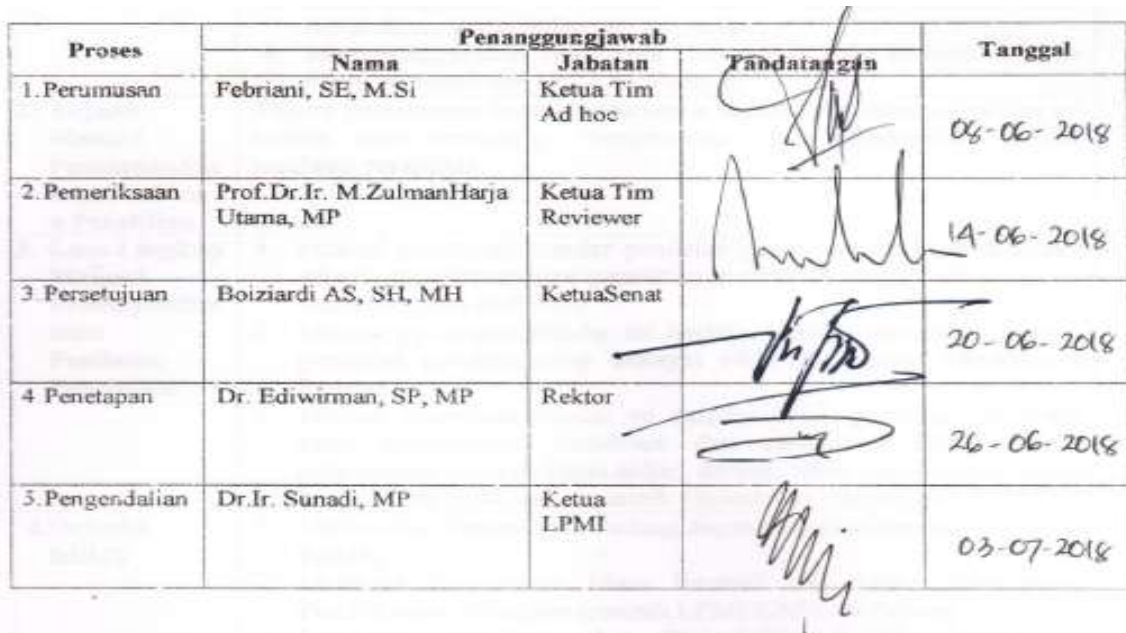 Proses Penanggungjawab Tanggal
Nama Jabatan Tandatangan
1.Perumusan Febriani, SE, M.Si Ketua Tim
Ad hoc
08-06-2018
2.Pemeriksaan Prof.Dr.Ir. M.ZulmanHarja Ketua Tim
Utama, MP Reviewer
14-06-2018
3 Persetujuan Boiziardi AS, SH, MH KetuaSenat
20-06-2018
4 Penetapan Dr. Ediwirman, SP, MP Rektor
26-06-2018
5.Pengendalian Dr.Ir. Sunadi, MP Ketua
LPMI
03-07-2018